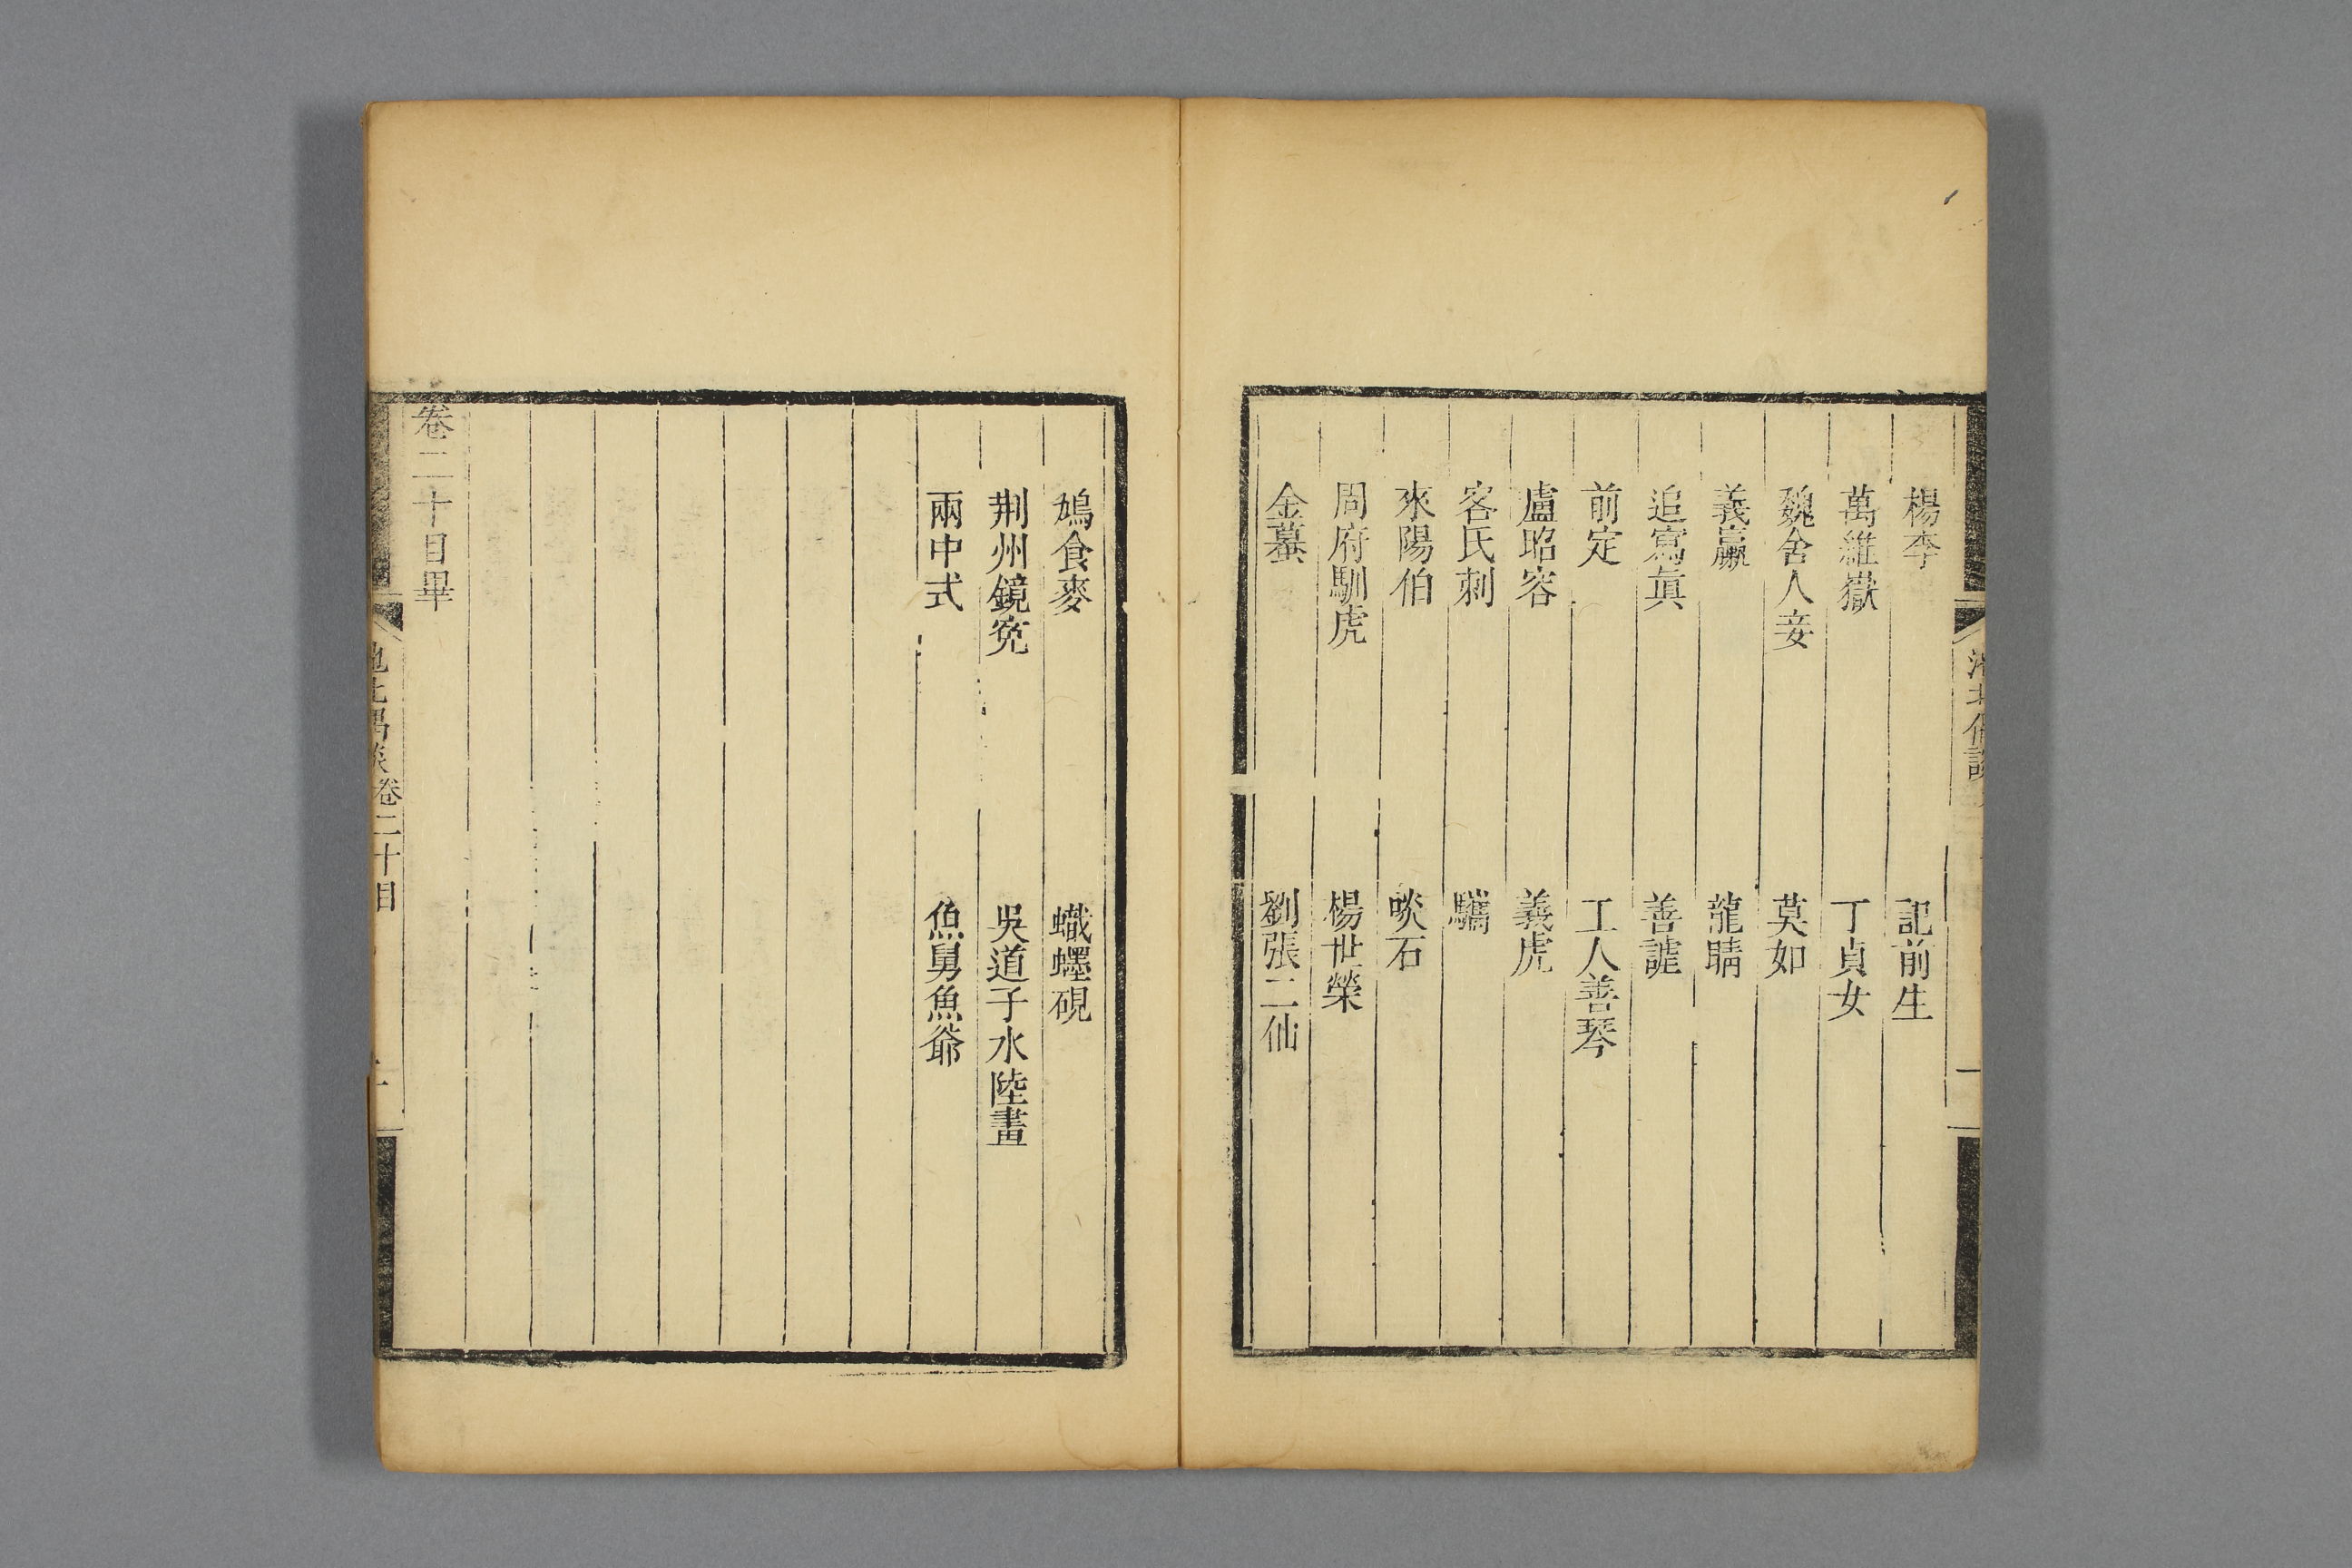 楊李
記前生
萬維嶽
丁貞女
魏舍人妾
莫如
義嬴
龍睛
追寫眞
善謔
前定
工人善琴
盧昭容
義虎
客氏刺
驪
來陽伯
啖石
周府馴虎
楊世榮
金蟇
劉張二仙
鳩食麥
蠘蟔硯
荆州鏡寃
吳道子水陸畫
兩中式
魚舅魚爺
卷二十目畢
池北偶談卷二十目